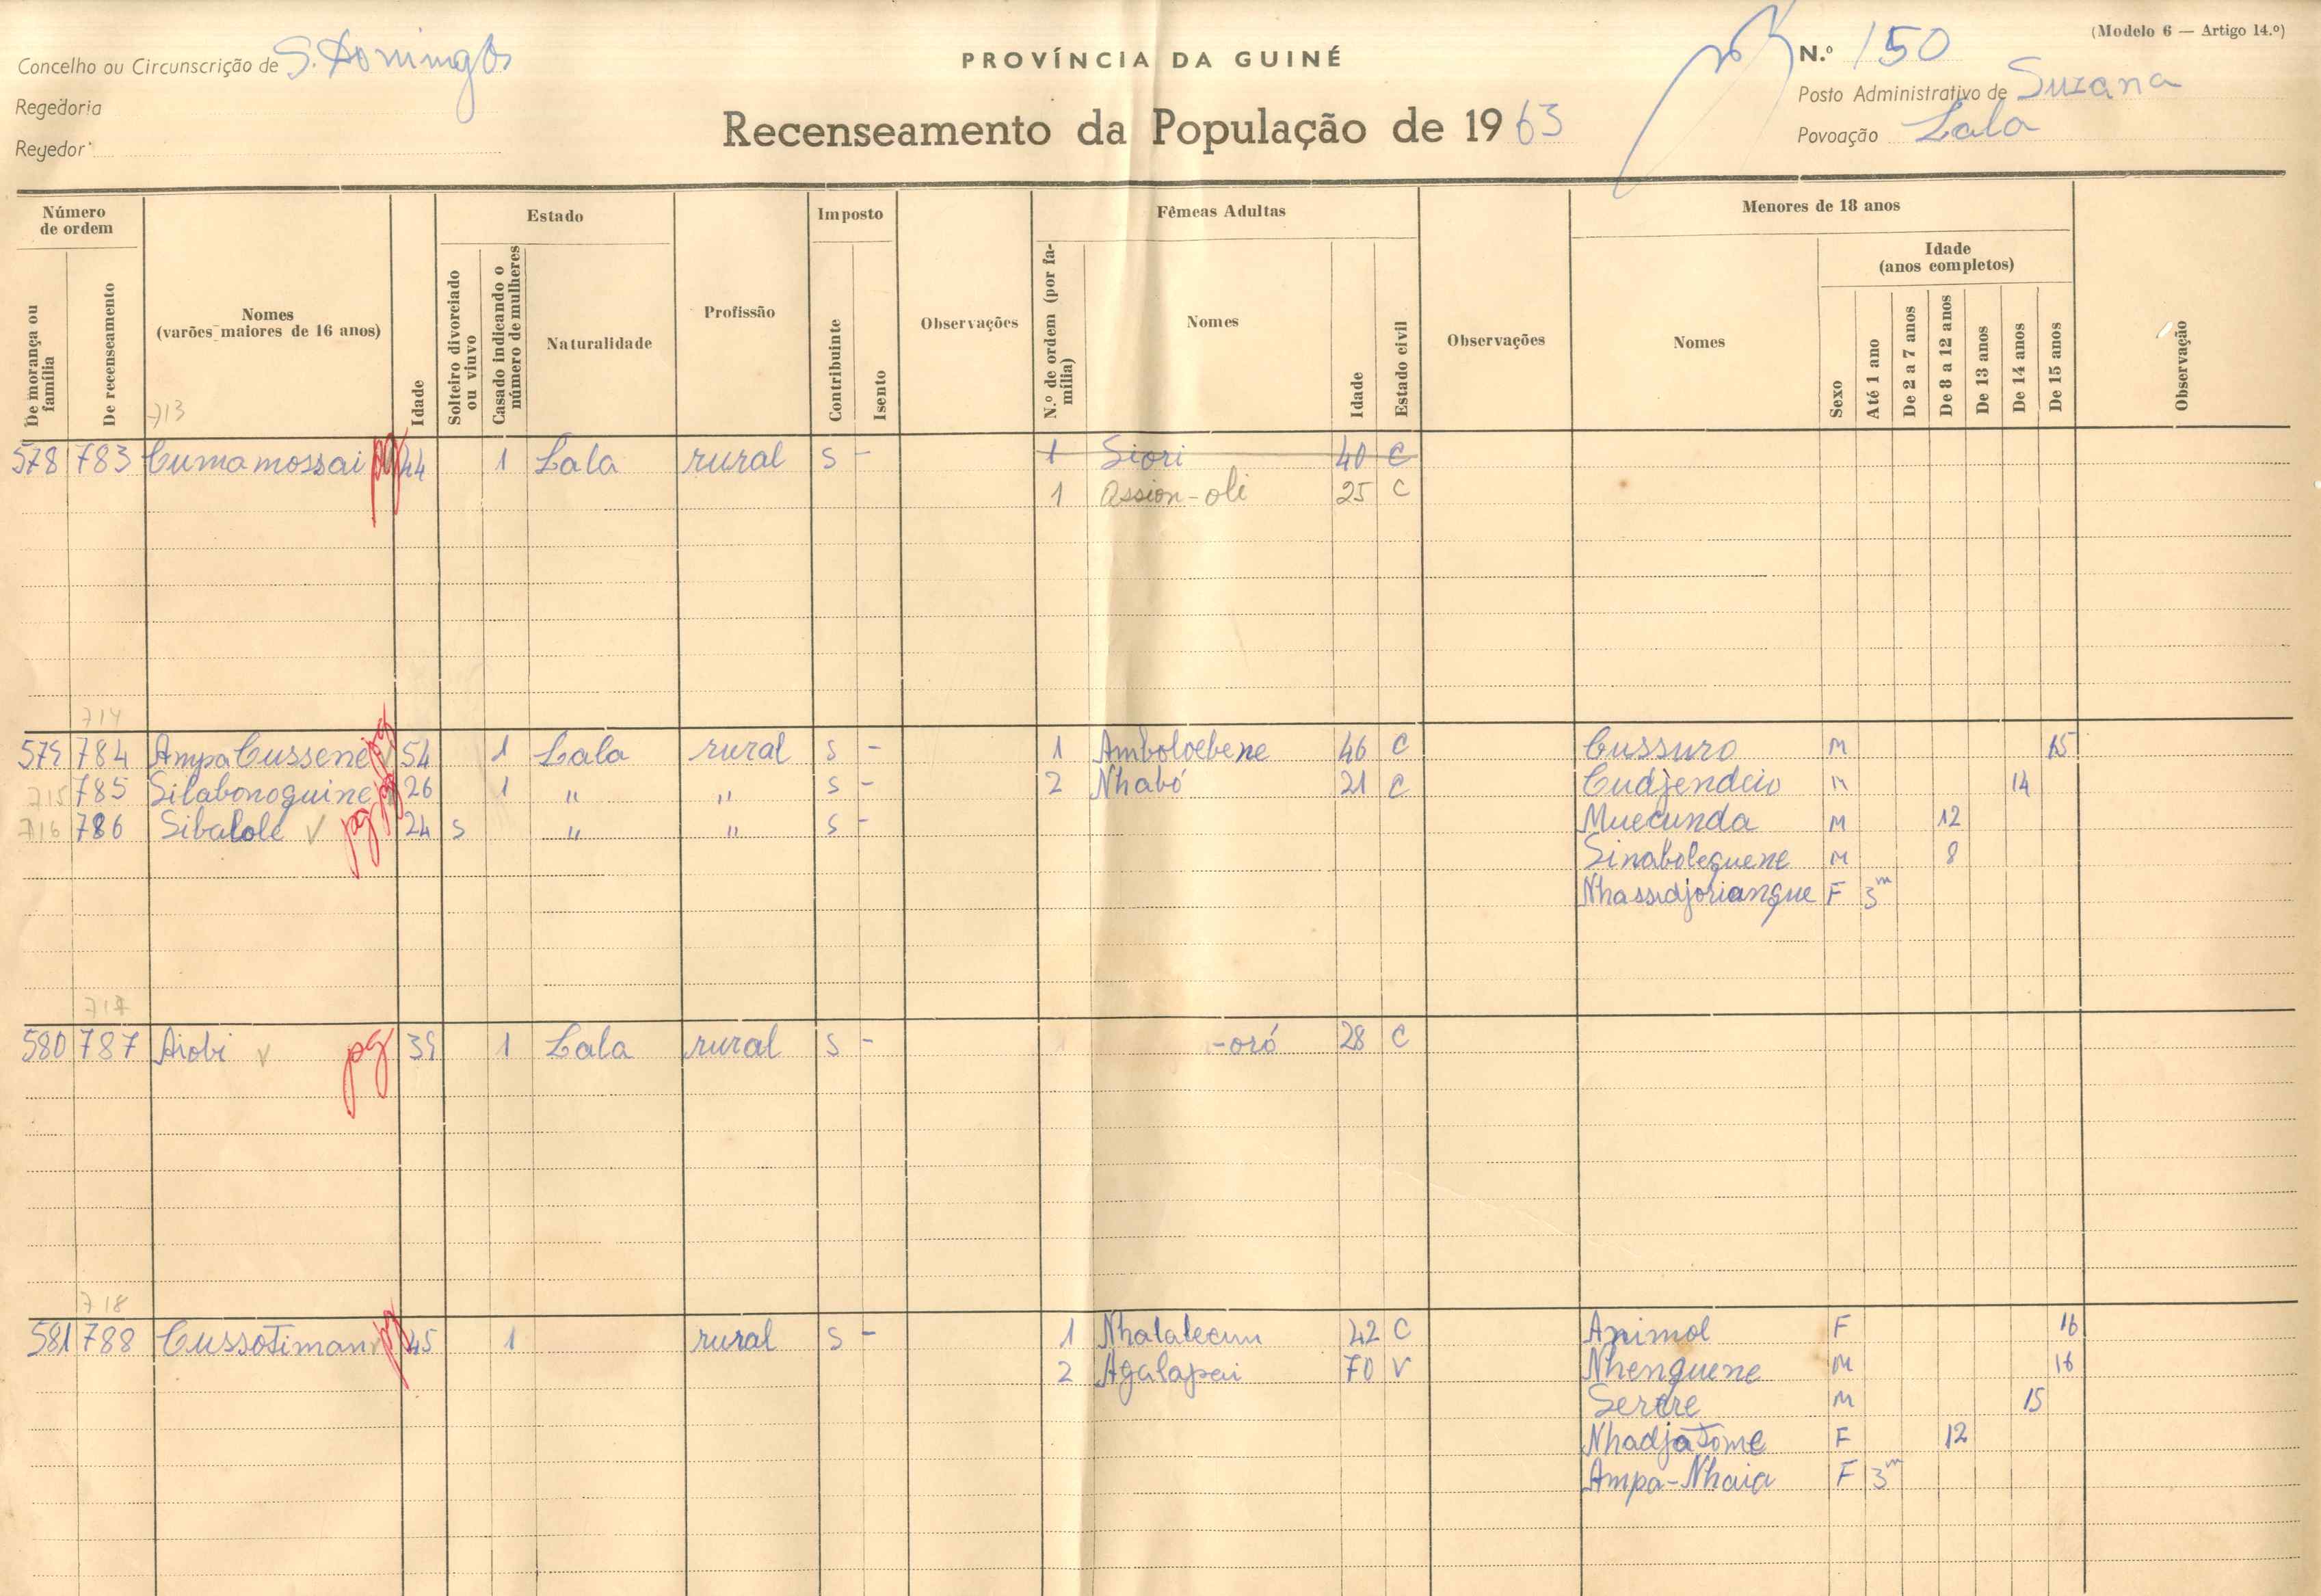 (Modelo 6 — Artigo 14.º)
Concelho ou Circunscrição de S. Domingos
PROVÍNCIA DA GUINÉ
N.º 150
Regedoria
Posto Administrativo de Suzana
Regedor
Recenseamento da População de 1963
Povoação Lala
Número de ordem
Estado
Imposto
Fêmeas Adultas
Menores de 18 anos
Idade (anos completos)
De morança ou família
De recenseamento
Nomes (varões maiores de 16 anos)
Idade
Solteiro divorciado ou viuvo
Casado indicando o número de mulheres
Naturalidade
Profissão
Contribuinte
Isento
Observações
N.º de ordem (por família)
Nomes
Idade
Estado civil
Observações
Nomes
Sexo
Até 1 ano
De 2 a 7 anos
De 8 a 12 anos
De 13 anos
De 14 anos
De 15 anos
Observação
713
578 783 Cumamossai pg 44 1 Lala rural s - 1 Siori 40 C
1 Assion-oli 25 C
714
579 784 Ampa Cussene pg 54 1 Lala rural s - 1 Amboloebene 46 C Cussuro M 15
715 785 Silabonoguine pg 26 1 " " s - 2 Nhabó 21 C Cudjendcio M 14
716 786 Sibalole v pg 24 s " " s - Muecunda M 12
Sinaboleguene M 8
Nhassidjoriangue F 3m
717
580 787 Aiobi v pg 39 1 Lala rural s - -oró 28 C
718
581 788 Cussotiman pg 45 1 rural s - 1 Nhalalecum 42 C Animol F 16
2 Agalapai 70 V Nhenguene M 16
Serere M 15
Nhadjatome F 12
Ampa-Nhaia F 3m